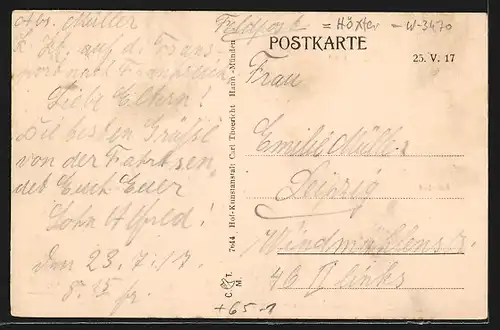 Abs. Müller
z. Zt. auf d. Trans-
port nach Frankreich
Liebe Eltern!
Die besten Grüße
von der Fahrt sen-
det Euch Euer
Sohn Alfred!
Den 23.7.17.
Feldpost
= Höxter - W-3470
POSTKARTE
25. V. 17
Frau
Emilie Müller
Leipzig
Windmühlenstr.
46 II links
7644 Hof-Kunstanstalt Carl Thoericht Hann.-Münden
C T.
M.
+65-1